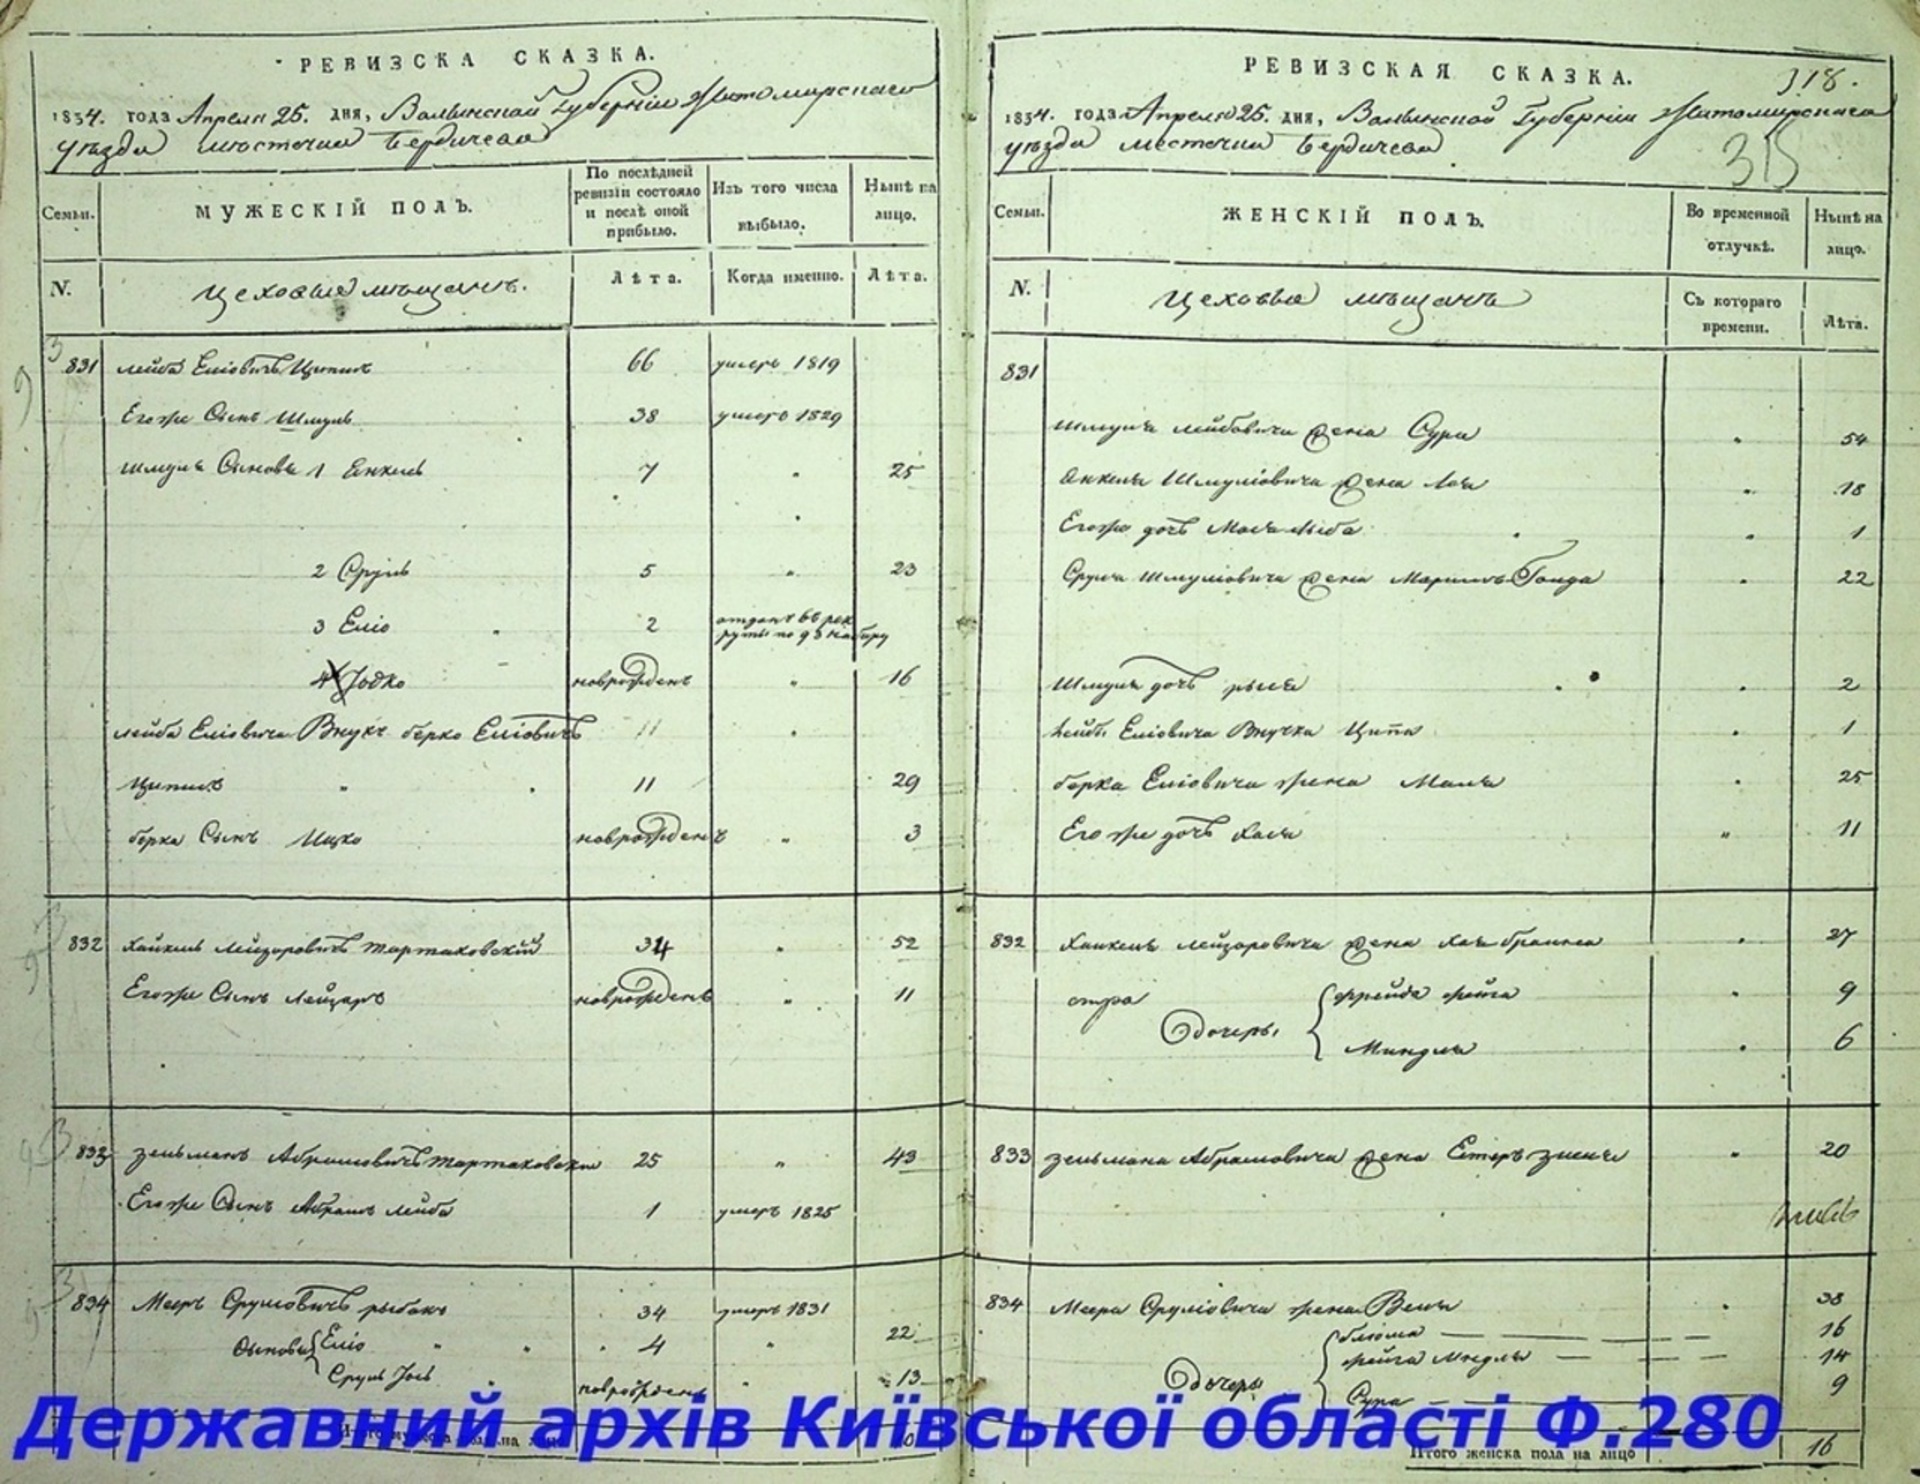 РЕВИЗСКА СКАЗКА.
1834. года Апреля 25. дня, Волынской Губерніи Житомирскаго
уѣзда мѣстечка Бердичева
Семьи.
МУЖЕСКІЙ ПОЛЪ.
По послѣдней ревизіи состояло и послѣ оной прибыло.
Изъ того числа выбыло.
Нынѣ на лицо.
N.
Цеховые мѣщанъ.
Лѣта.
Когда именно.
Лѣта.
831 Лейба Еліовичъ Ципинъ 66 умеръ 1819
Егоже Сынъ Шмуль 38 умеръ 1829
Шмуля Сыновья 1 Янкель 7 " 25
2 Сруль 5 " 23
3 Еліо 2 отданъ въ рекруты по 93 набору
4 Іодко новорожденъ " 16
Лейба Еліовича Внукъ берко Еліовичъ 11
Ципинъ " 11 29
берка Сынъ Ицко новорожденъ " 3
832 Хаикель Лейзоровичъ Тартаковскій 34 " 52
Егоже Сынъ Лейзаръ новорожденъ " 11
833 Зельманъ Абрамовичъ Тартаковскій 25 " 43
Егоже Сынъ Абрамъ Лейба 1 умеръ 1825
834 Меръ Сруліовичъ рыбакъ 34 умеръ 1831
Сыновья Еліо " " 4 " 22
Сруль Іось новорожденъ " 13
Итого мужеска пола на лицо
РЕВИЗСКАЯ СКАЗКА.
318.
1834. года Апреля 25. дня, Волынской Губерніи Житомирскаго
уѣзда местечка Бердичева
315
Семьи.
ЖЕНСКІЙ ПОЛЪ.
Во временной отлучкѣ.
Нынѣ на лицо.
N.
Цеховые мѣщанъ
Съ котораго времени.
Лѣта.
831
Шмуля Лейбовича жена Сура " 54
Янкеля Шмуліовича жена Лея " 18
Егоже дочь 1
Сруля Шмуліовича жена 22
Шмуля дочь рыся " 2
Лейбы Еліовича Внучка Ципа " 1
берка Еліовича жена Маля " 25
Егоже дочь Хася " 11
832 Хаикеля Лейзоровича жена Хая браина " 27
дочеры фрейда " 9
Миндля " 6
833 Зельмана Абрамовича жена Естеръ " 20
834 Меера Сруліовича жена 38
дочеры блюма 16
фейга Миндля 14
Сура 9
Итого женска пола на лицо 16
Державний архів Київської області Ф.280